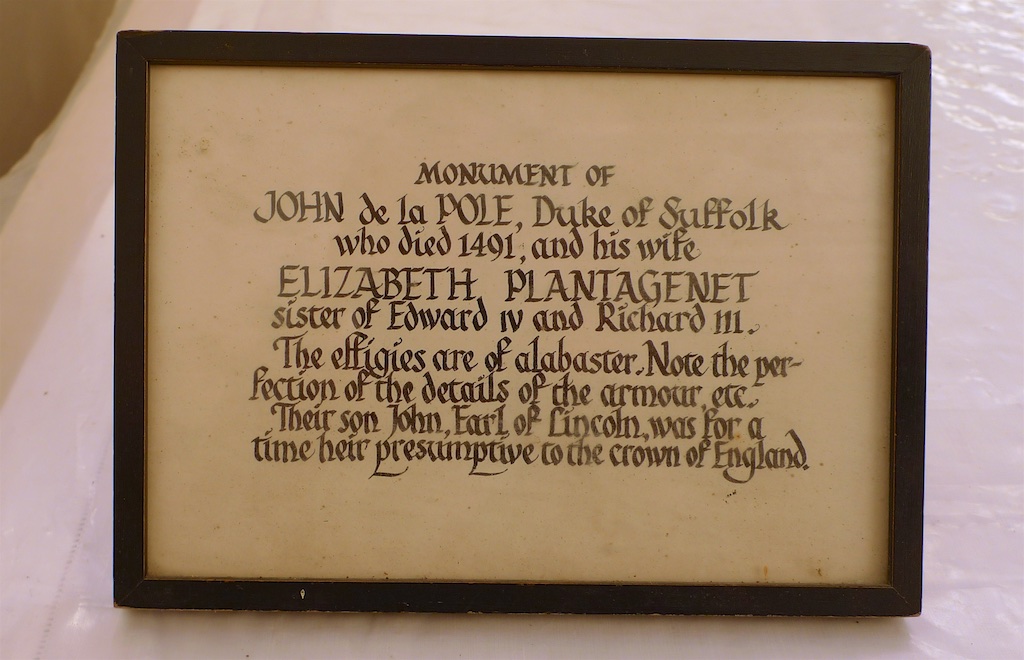 MONUMENT OF
JOHN de la POLE, Duke of Suffolk
who died 1491, and his wife
ELIZABETH PLANTAGENET
sister of Edward IV and Richard III.
The effigies are of alabaster. Note the per-
fection of the details of the armour, etc.
Their son John, Earl of Lincoln, was for a
time heir presumptive to the crown of England.